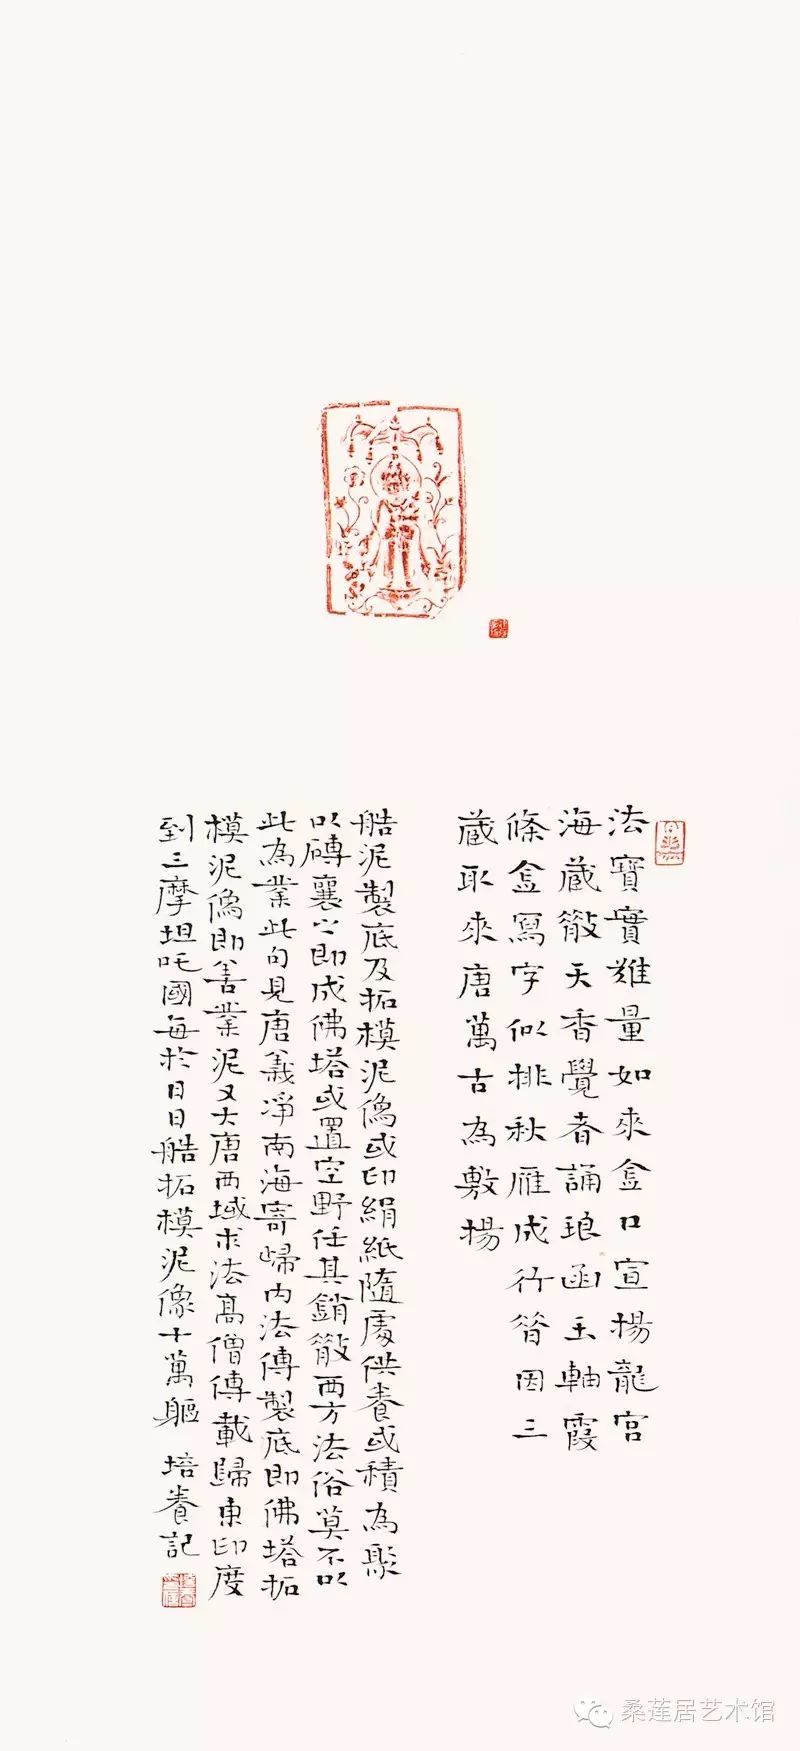 法寶實難量如來金口宣揚龍宮
海藏散天香覺者誦琅函玉軸霞
條金寫字似排秋雁成行昔因三
藏取來唐萬古為敷揚
艁泥製底及拓模泥像或印絹紙隨處供養或積為聚
以磚襄之即成佛塔或置空野任其銷散西方法俗莫不以
此為業此句見唐義淨南海寄歸内法傳製底即佛塔拓
模泥像即善業泥又大唐西域求法高僧傳載歸東印度
到三摩坦吒國每於日日艁拓模泥像十萬軀 培養記
桑莲居艺术馆